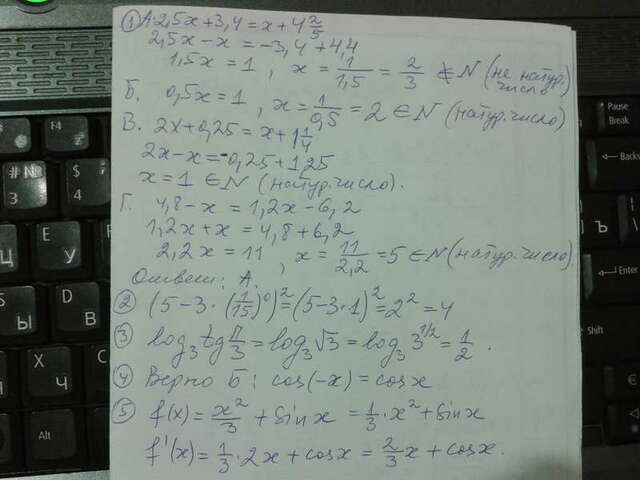 ① А. 2,5x+3,4=x+4 2/5
2,5x-x=-3,4+4,4
1,5x=1, x=1/1,5=2/3 ∉N (не натур. число)
Б. 0,5x=1, x=1/0,5=2∈N (натур. число)
В. 2x+0,25=x+1 1/4
2x-x=-0,25+1,25
x=1 ∈N (натур. число).
Г. 4,8-x=1,2x-6,2
1,2x+x=4,8+6,2
2,2x=11, x=11/2,2=5∈N (натур. число).
Ответ: А.
② (5-3·(1/15)⁰)²=(5-3·1)²=2²=4
③ log₃tg π/3=log₃√3=log₃3^1/2=1/2.
④ Верно Б: cos(-x)=cosx
⑤ f(x)=x²/3+sinx=1/3·x²+sinx
f'(x)=1/3·2x+cosx=2/3x+cosx.
# N
3
$
4
F3
F4
Pause
Break
Back
Enter
Shift
Alt
Е
У
Ц
Ы
В
Ъ
S
D